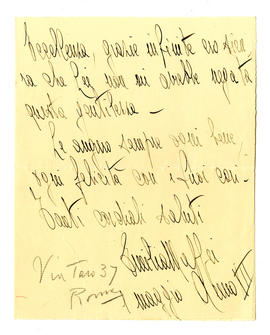 Eccellenza, grazie infinite ero sicu
ra che Lei non mi avrebbe negata
questa gentilezza –
Le auguro sempre ogni bene,
ogni felicità con i suoi cari –
Tanti cordiali saluti
Via Taro 37
Roma
maggio Anno III